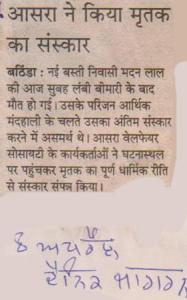 आसरा ने किया मृतक
का संस्कार
बठिंडा : नई बस्ती निवासी मदन लाल
की आज सुबह लंबी बीमारी के बाद
मौत हो गई। उसके परिजन आर्थिक
मंदहाली के चलते उसका अंतिम संस्कार
करने में असमर्थ थे। आसरा वेलफेयर
सोसायटी के कार्यकर्ताओं ने घटनास्थल
पर पहुंचकर मृतक का पूर्ण धार्मिक रीति
से संस्कार संपन्न किया।
8
ਦੈਨਿਕ ਜਾਗਰਣ